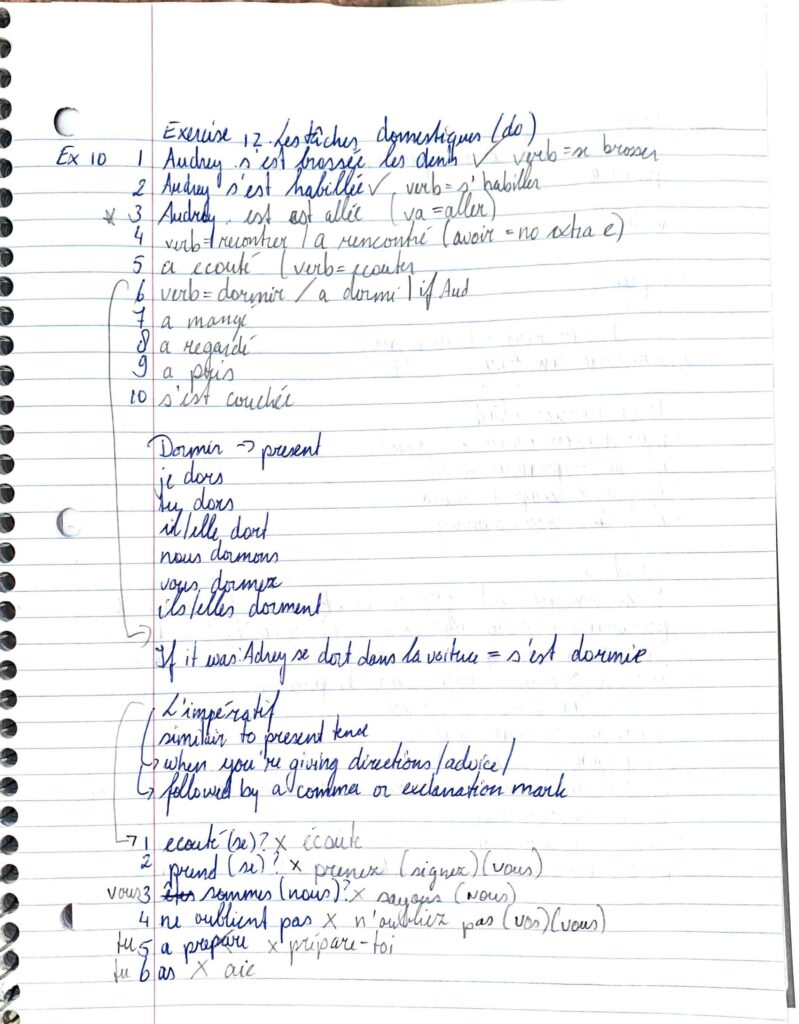 Exercise 12. Les tâches domestiques (do)
Ex 10 1 Audrey s'est brossée les dents ✓ verb = se brosser
2 Audrey s'est habillée ✓ verb = s'habiller
x 3 Audrey est allée (va = aller)
4 verb = recontrer / a rencontré (avoir = no extra e)
5 a ecouté (verb = ecouter
6 verb = dormir / a dormi | if Aud
7 a mangé
8 a regardé
9 a pris
10 s'est couchée
Dormir → present
je dors
tu dors
il/elle dort
nous dormons
vous dormez
ils/elles dorment
If it was: Adrey se dort dans la voiture = s'est dormie
L'impératif
similair to present tence
when you're giving directions/advice/
followed by a comma or exclanation mark
1 ecouté (se)? x écoute
2 prend (se)? x prenez (signez) (vous)
vous 3 êtes sommes (nous)? x soyons (nous)
4 ne oublient pas x n'oubliez pas (vos) (vous)
tu 5 a prepáre x prépare-toi
tu 6 as x aie